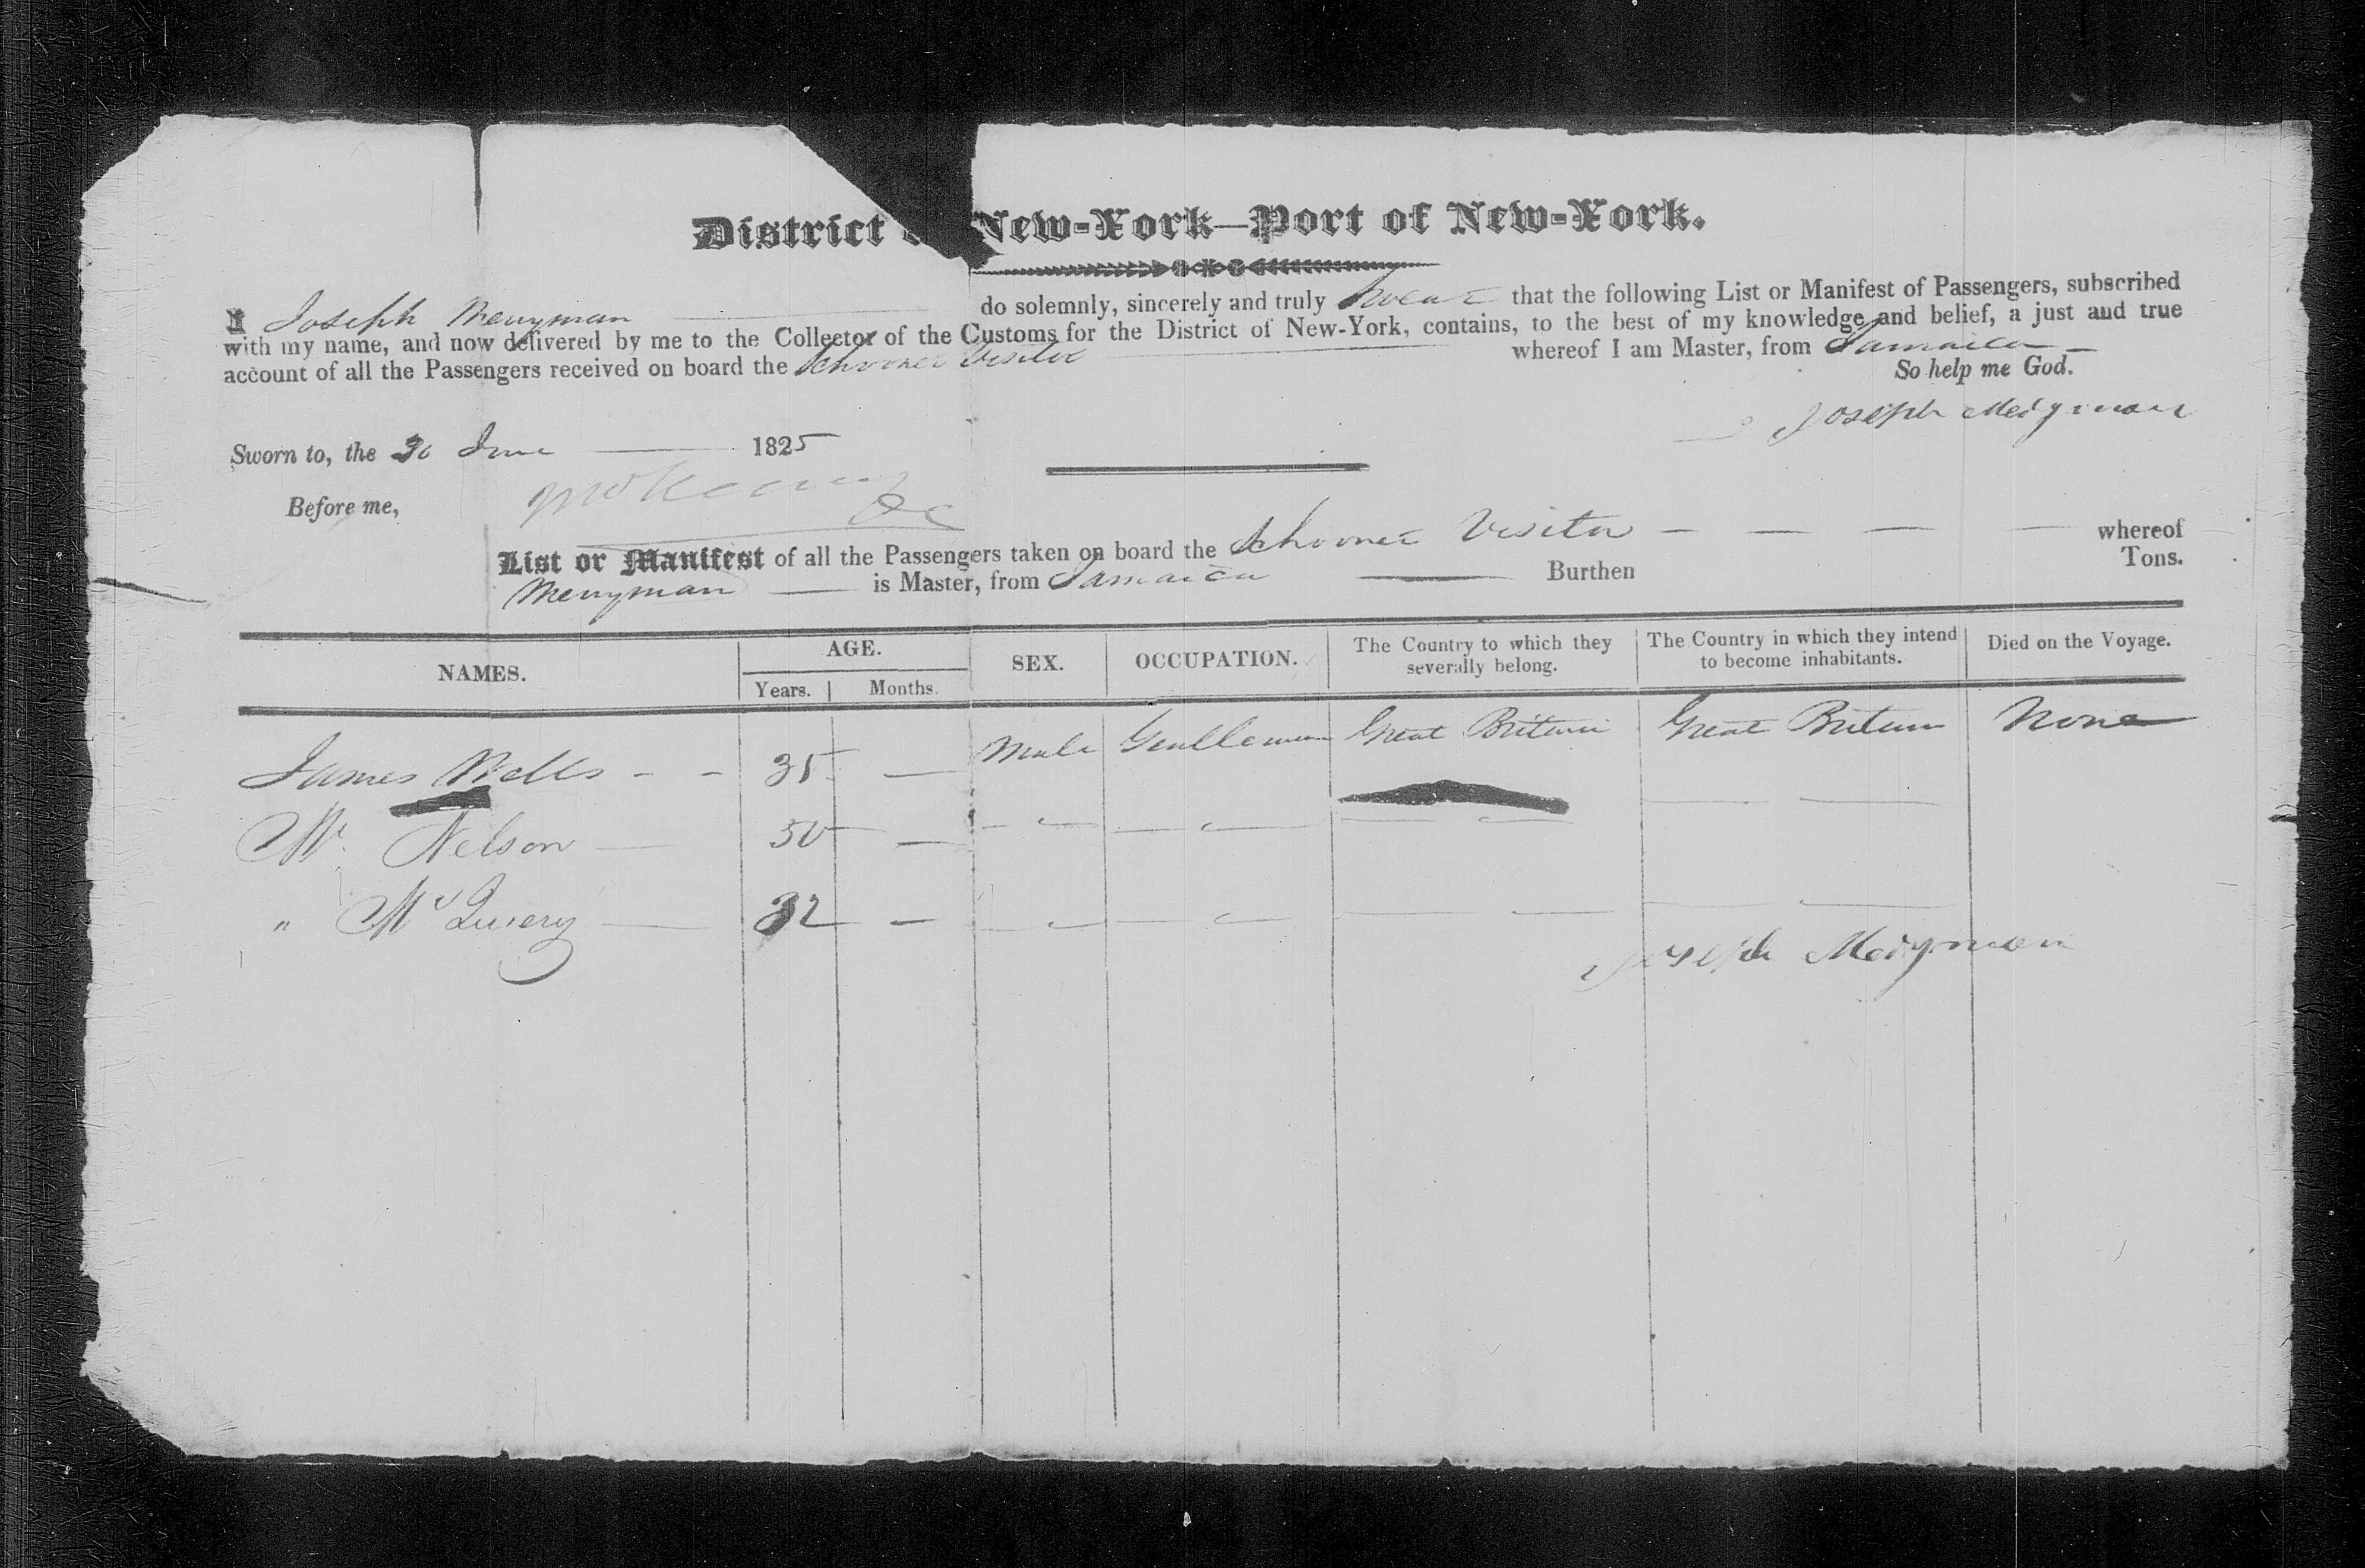 District of New-York—Port of New-York.
I Joseph Merryman do solemnly, sincerely and truly Swear that the following List or Manifest of Passengers, subscribed
with my name, and now delivered by me to the Collector of the Customs for the District of New-York, contains, to the best of my knowledge and belief, a just and true
account of all the Passengers received on board the Schooner Visitor whereof I am Master, from Jamaica
So help me God.
Joseph Merryman
Sworn to, the 30 June 1825
Before me,
List or Manifest of all the Passengers taken on board the Schooner Visitor — — — — whereof
Merryman — is Master, from Jamaica — Burthen Tons.
NAMES. AGE. SEX. OCCUPATION. The Country to which they severally belong. The Country in which they intend to become inhabitants. Died on the Voyage.
Years. Months.
James Wells - - 35 — Male Gentleman Great Britain Great Britain None
Mr. Nelson — 50 —
" Mc — 32 —
Joseph Merryman